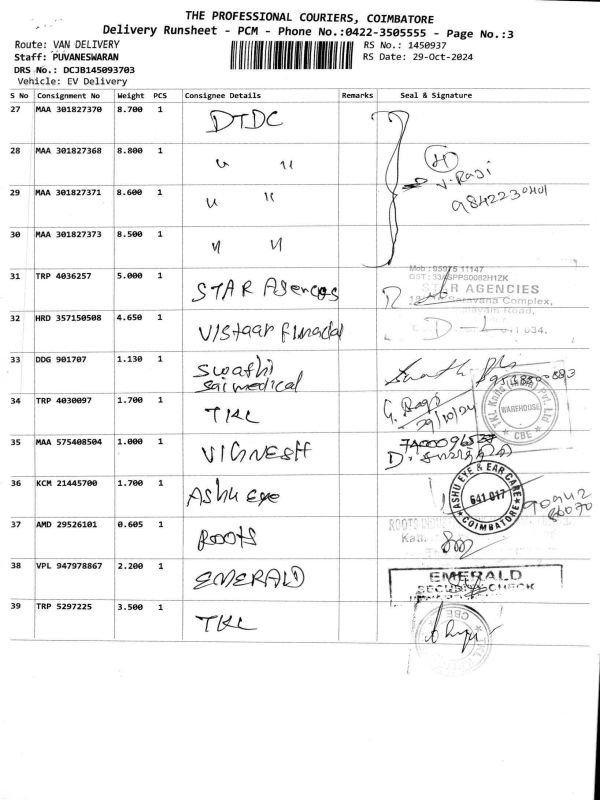 THE PROFESSIONAL COURIERS, COIMBATORE
Delivery Runsheet - PCM - Phone No.:0422-3505555 - Page No.:3
Route: VAN DELIVERY
RS No.: 1450937
Staff: PUVANESWARAN
RS Date: 29-Oct-2024
DRS No.: DCJB145093703
Vehicle: EV Delivery
S No Consignment No Weight PCS Consignee Details Remarks Seal & Signature
27 MAA 301827370 8.700 1 DTDC
28 MAA 301827368 8.800 1 " "
V. Raji
9842230401
29 MAA 301827371 8.600 1 " "
30 MAA 301827373 8.500 1 " "
Mob : 95975 11147
GST : 33ASPPS0082H1ZK
31 TRP 4036257 5.000 1 STAR Agences STAR AGENCIES
Saravana Complex,
Road,
32 HRD 357150508 4.650 1 Vistaar Financial
33 DDG 901707 1.130 1 Swathi
Sai medical
34 TRP 4030097 1.700 1 TKL
29/10/24
WAREHOUSE
CBE
35 MAA 575408504 1.000 1 VIGNESH
36 KCM 21445700 1.700 1 Ashu eye
ASHU EYE & EAR CARE
641 017
COIMBATORE
37 AMD 29526101 0.605 1 ROOTS
ROOTS
38 VPL 947978867 2.200 1 EMERALD
EMERALD
SECURITY CHECK
39 TRP 5297225 3.500 1 TKL